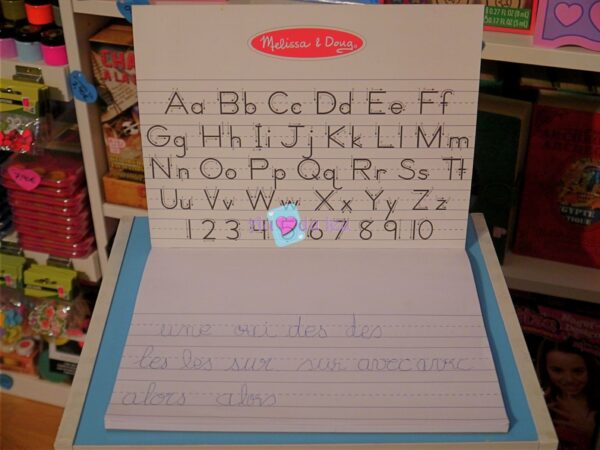 Melissa & Doug
Aa Bb Cc Dd Ee Ff
Gg Hh Ii Jj Kk Ll Mm
Nn Oo Pp Qq Rr Ss Tt
Uu Vv Ww Xx Yy Zz
1 2 3 4 5 6 7 8 9 10
une oui des des
les les sur sur avec avec
alors alors
0.27 FL OZ (8 mL)
0.17 FL OZ (5 mL)
EGYPTE